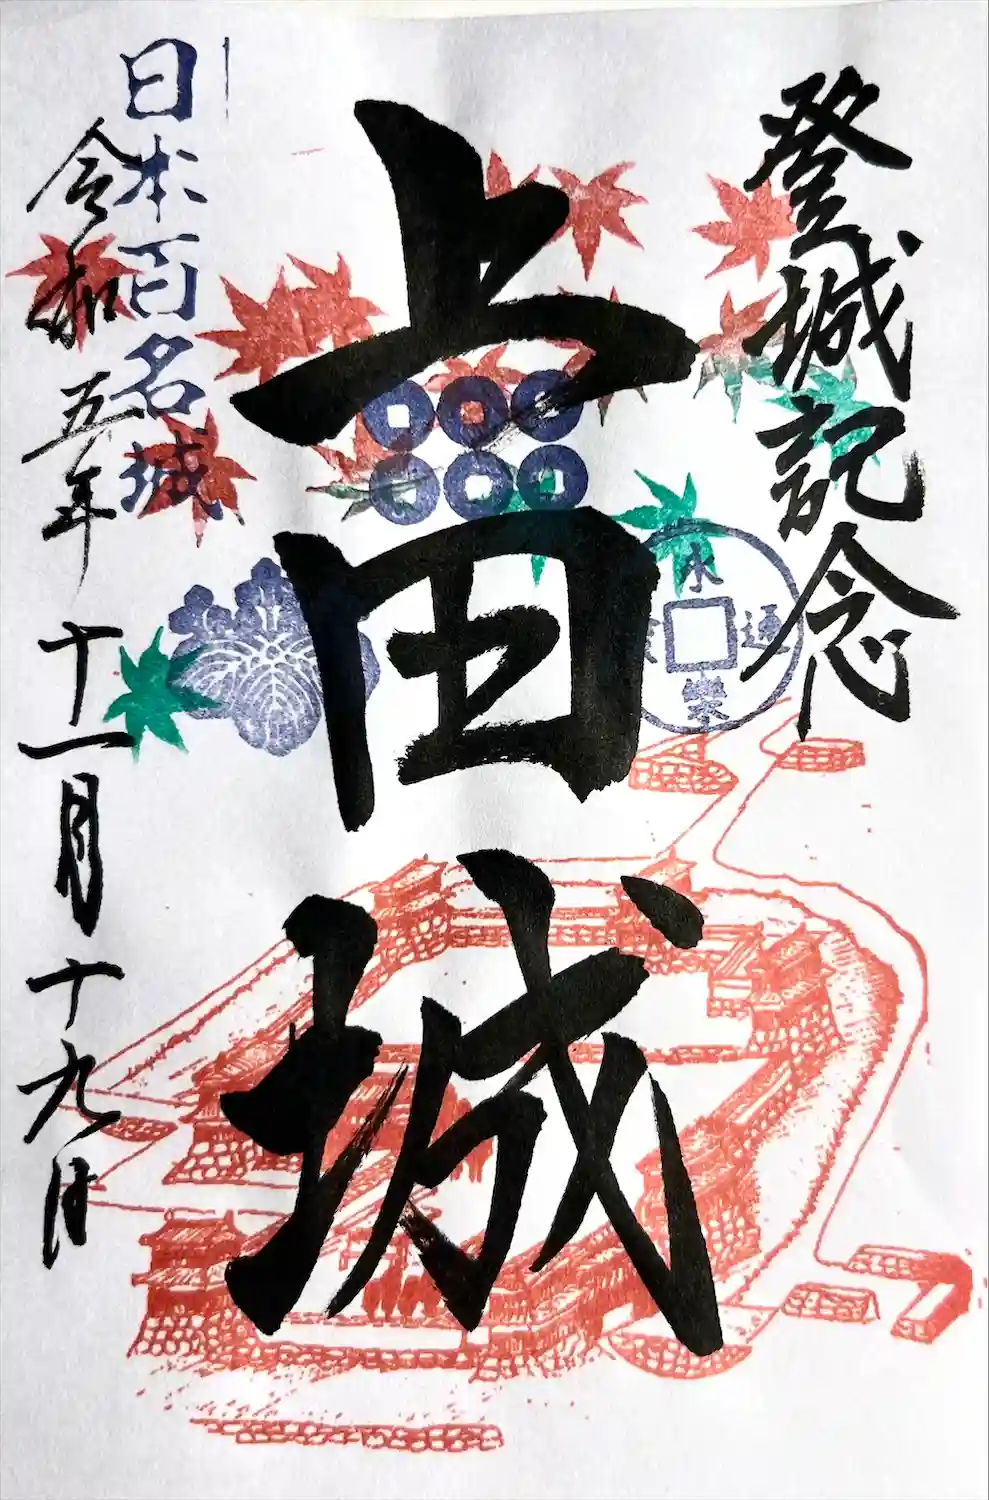 登城記念
上田城
永樂通寳
日本百名城
令和五年十一月十九日